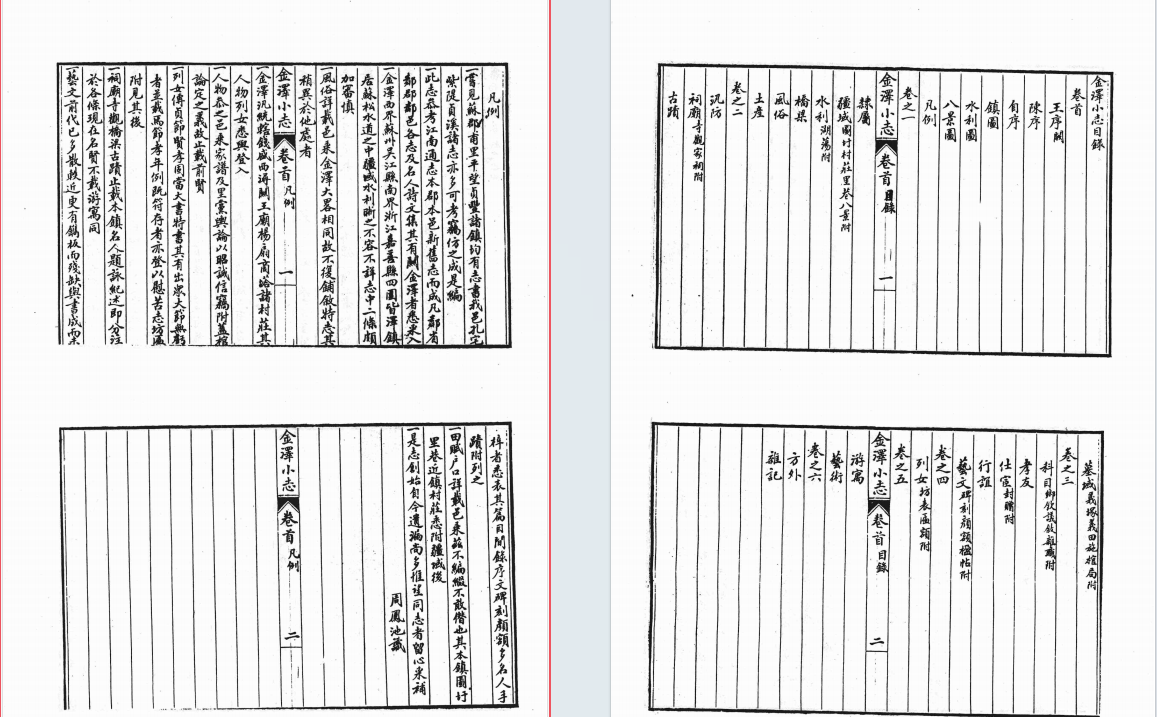 金澤小志目錄
卷首
王序闕
陳序
自序
鎮圖
水利圖
八景圖
凡例
卷之一
金澤小志 卷首 目錄 一
隸屬
疆域圖圩村莊里巷八景附
水利湖蕩附
橋梁
風俗
土產
卷之二
汛防
祠廟寺觀家祠附
古蹟
墓域義塚義田施棺局附
卷之三
科目鄉飲議敘雜職附
仕宦封贈附
孝友
行誼
藝文碑刻顏額楹帖附
卷之四
列女坊表匾額附
卷之五
金澤小志 卷首 目錄 二
游寓
藝術
卷之六
方外
雜記
凡例
一嘗見蘇郡甫里平望貞豐諸鎮均有志書我邑孔宅
紫隄貞溪諸志亦多可考竊仿之成是編
一此志叅考江南通志本郡本邑新舊志而成凡鄰省
鄰郡鄰邑各志及名人詩文集其有關金澤者悉采入
一金澤西界蘇州吳江縣南界浙江嘉善縣四圍皆澤鎮
居蘇松水道之中疆域水利晰之不容不詳志中二條頗
加審慎
一風俗詳載邑乘金澤大畧相同故不復鋪敘特志其
稍異於他處者
金澤小志 卷首 凡例 一
一金澤汛統轄錢盛西濟關王廟楊扇商塔諸村莊其
人物列女悉與登入
一人物叅之邑乘家譜及里黨輿論以昭誠信竊附蓋棺
論定之義故止載前賢
一列女傳貞節賢孝固當大書特書其有出眾大節無虧
者並載焉節孝年例既符存者亦登以慰苦志坊匾
附見其後
一祠廟寺觀橋梁古蹟止載本鎮名人題詠紀述即分註
於各條現在名賢不載游寓同
一藝文前代已多散軼近更有鐫板而殘缺與書成而未
梓者悉表其篇目間錄序文碑刻顏額多名人手
蹟附列之
一田賦户口詳載邑乘茲不編綴不敢僭也其本鎮圖圩
里巷近鎮村莊悉附疆域後
一是志創始自今遺漏尚多惟望同志者留心采補
周鳳池識
金澤小志 卷首 凡例 二